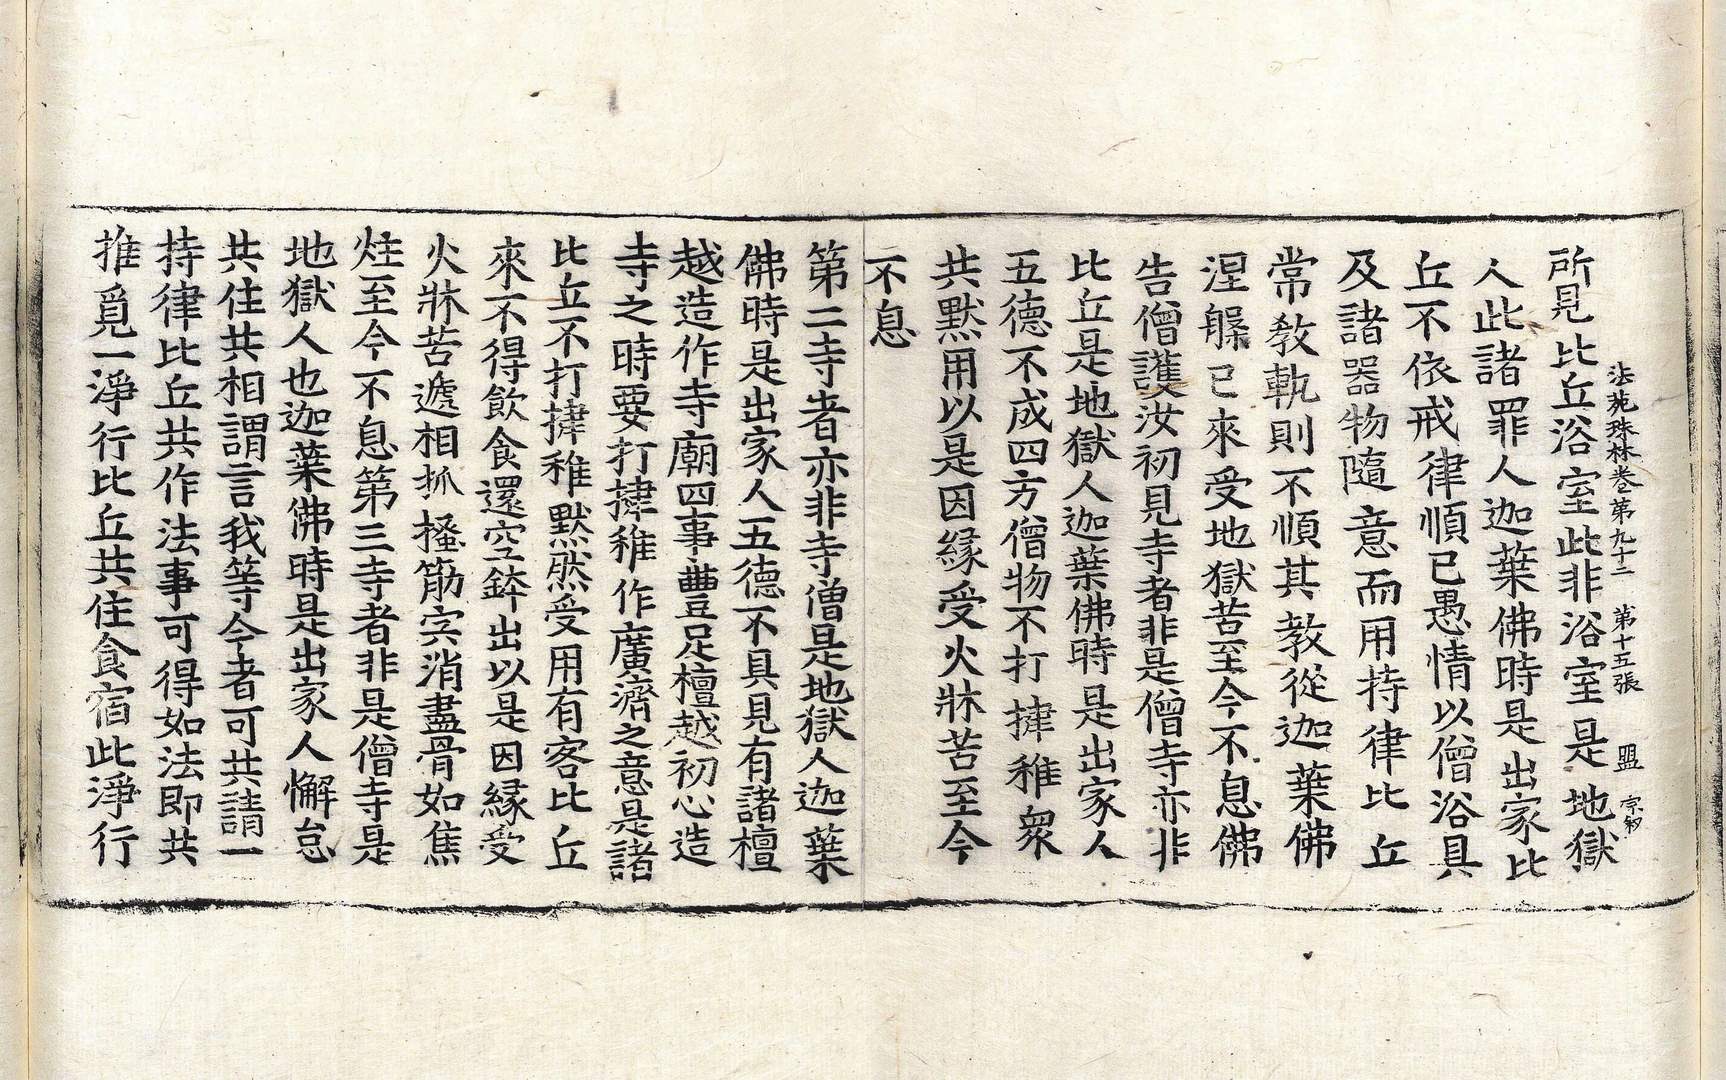 法苑珠林卷第九十二　第十五張　盟
所見比丘浴室此非浴室是地獄
人此諸罪人迦葉佛時是出家比
丘不依戒律順已愚情以僧浴具
及諸器物隨意而用持律比丘
常教軌則不順其教從迦葉佛
涅槃已來受地獄苦至今不息佛
告僧護汝初見寺者非是僧寺亦非
比丘是地獄人迦葉佛時是出家人
五德不成四方僧物不打揵稚衆
共默用以是因緣受火牀苦至今
不息
第二寺者亦非寺僧是地獄人迦葉
佛時是出家人五德不具見有諸檀
越造作寺廟四事豐足檀越初心造
寺之時要打揵稚作廣濟之意是諸
比丘不打揵稚默然受用有客比丘
來不得飲食還空鉢出以是因緣受
火牀苦遞相抓搔筋宍消盡骨如焦
炷至今不息第三寺者非是僧寺是
地獄人也迦葉佛時是出家人懈怠
共住共相謂言我等今者可共請一
持律比丘共作法事可得如法即共
推覓一淨行比丘共住食宿此淨行